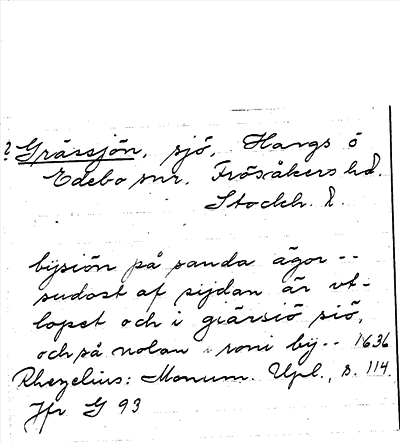 ? Grässjön, sjö, Hargs o
Edebo snr. Frösåkers hd.
Stockh. l.
bysiön på sanda ägor --
sudost af sijdan är vt-
lopet och i gräsiö siö,
och så nolan i roni by -- 1636
Rhezelius: Monum. Upl., s. 114.
Jfr G 93